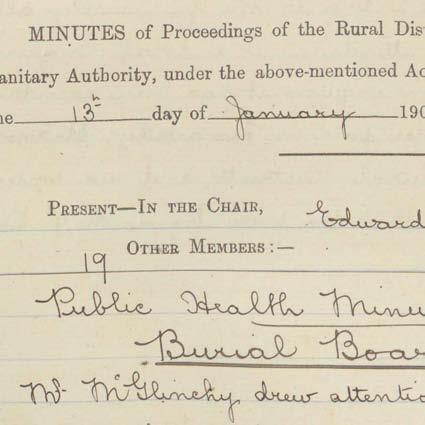 MINUTES of Proceedings of the Rural Dis
anitary Authority, under the above-mentioned Ac
e 13th day of January 190
PRESENT—IN THE CHAIR, Edward
OTHER MEMBERS:—
19
Public Health Minu
Burial Boar
Mr McGlinchy drew attentio